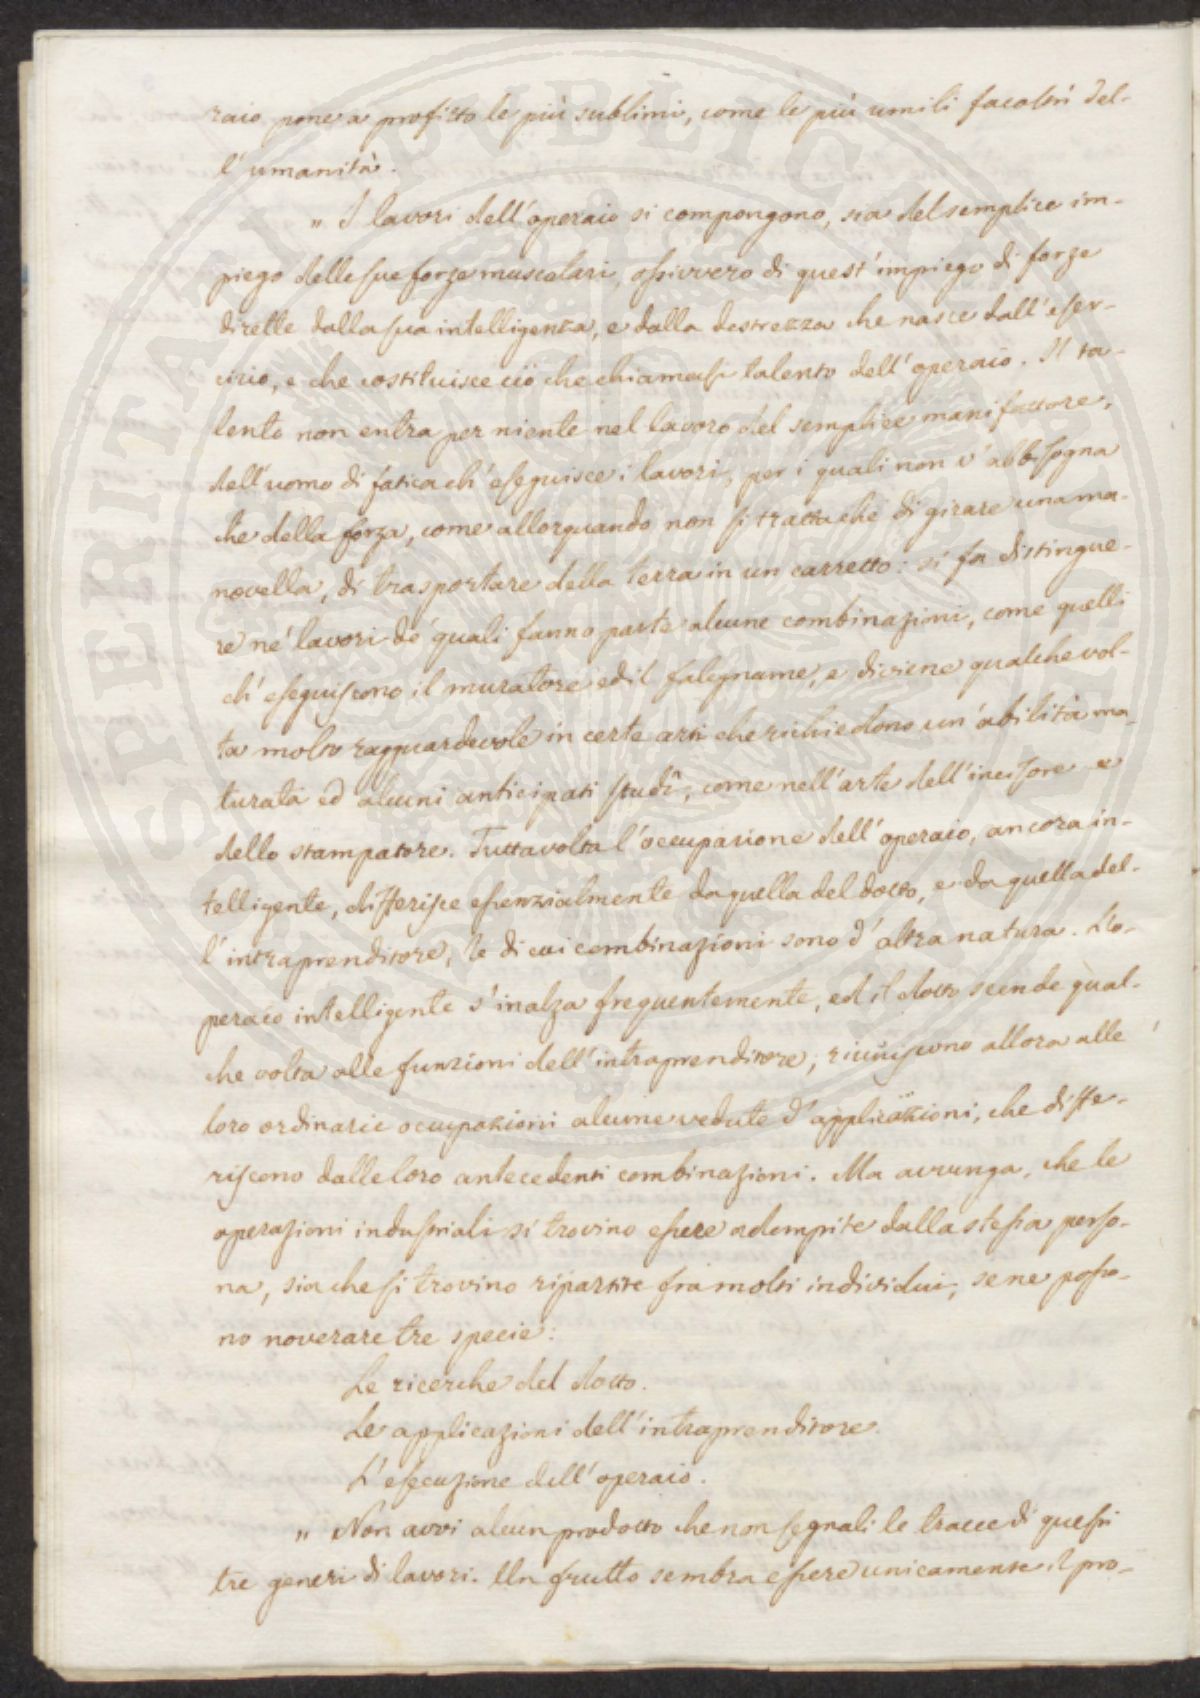 raio pone a profitto le più sublimi, come le più umili facoltà del-
l'umanità.
„ I lavori dell'operaio si compongono, sia del semplice im-
piego delle sue forze muscolari, ossivvero di quest'impiego di forze
dirette dalla sua intelligenza, e dalla destrezza che nasce dall'eser-
cizio, e che costituisce ciò che chiamasi talento dell'operaio. Il ta-
lento non entra per niente nel lavoro del semplice manifattore,
dell'uomo di fatica ch'eseguisce i lavori, per i quali non v'abbisogna
che della forza, come allorquando non si tratta che di girare una ma-
novella, di trasportare della terra in un carretto: si fa distingue-
re ne' lavori de' quali fanno parte alcune combinazioni, come quelli
ch'eseguiscono il muratore ed il falegname, e diviene qualche vol-
ta molto ragguardevole in certe arti che richiedono un'abilità ma-
turata ed alcuni anticipati studî, come nell'arte dell'incisore e
dello stampatore. Tuttavolta l'occupazione dell'operaio, ancora in-
telligente, differisce essenzialmente da quella del dotto, e da quella del-
l'intraprenditore, le di cui combinazioni sono d'altra natura. L'o-
peraio intelligente s'inalza frequentemente, ed il dotto scende qual-
che volta alle funzioni dell'intraprenditore; riuniscono allora alle
loro ordinarie occupazioni alcune vedute d'applicazioni, che diffe-
riscono dalle loro antecedenti combinazioni. Ma avvenga, che le
operazioni industriali si trovino essere adempite dalla stessa perso-
na, sia che si trovino ripartite fra molti individui, se ne posso-
no noverare tre specie:
Le ricerche del dotto.
Le applicazioni dell'intraprenditore.
L'esecuzione dell'operaio.
„ Non avvi alcun prodotto che non segnali le tracce di questi
tre generi di lavori. Un frutto sembra essere unicamente il pro-
SPERITATI PUBLICAE